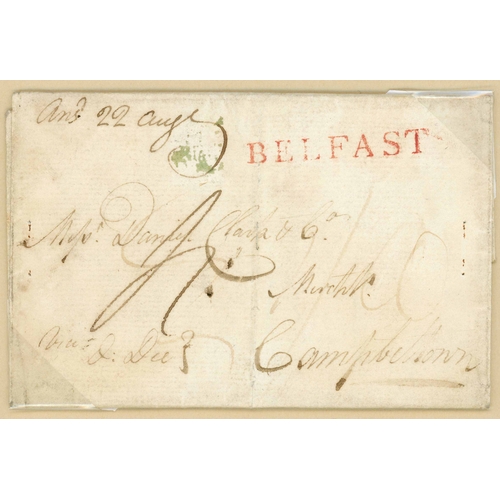 Ansd 22 Augt
BELFAST
Messrs. Daniel Clark & Co.
Mercht.
Campbeltown